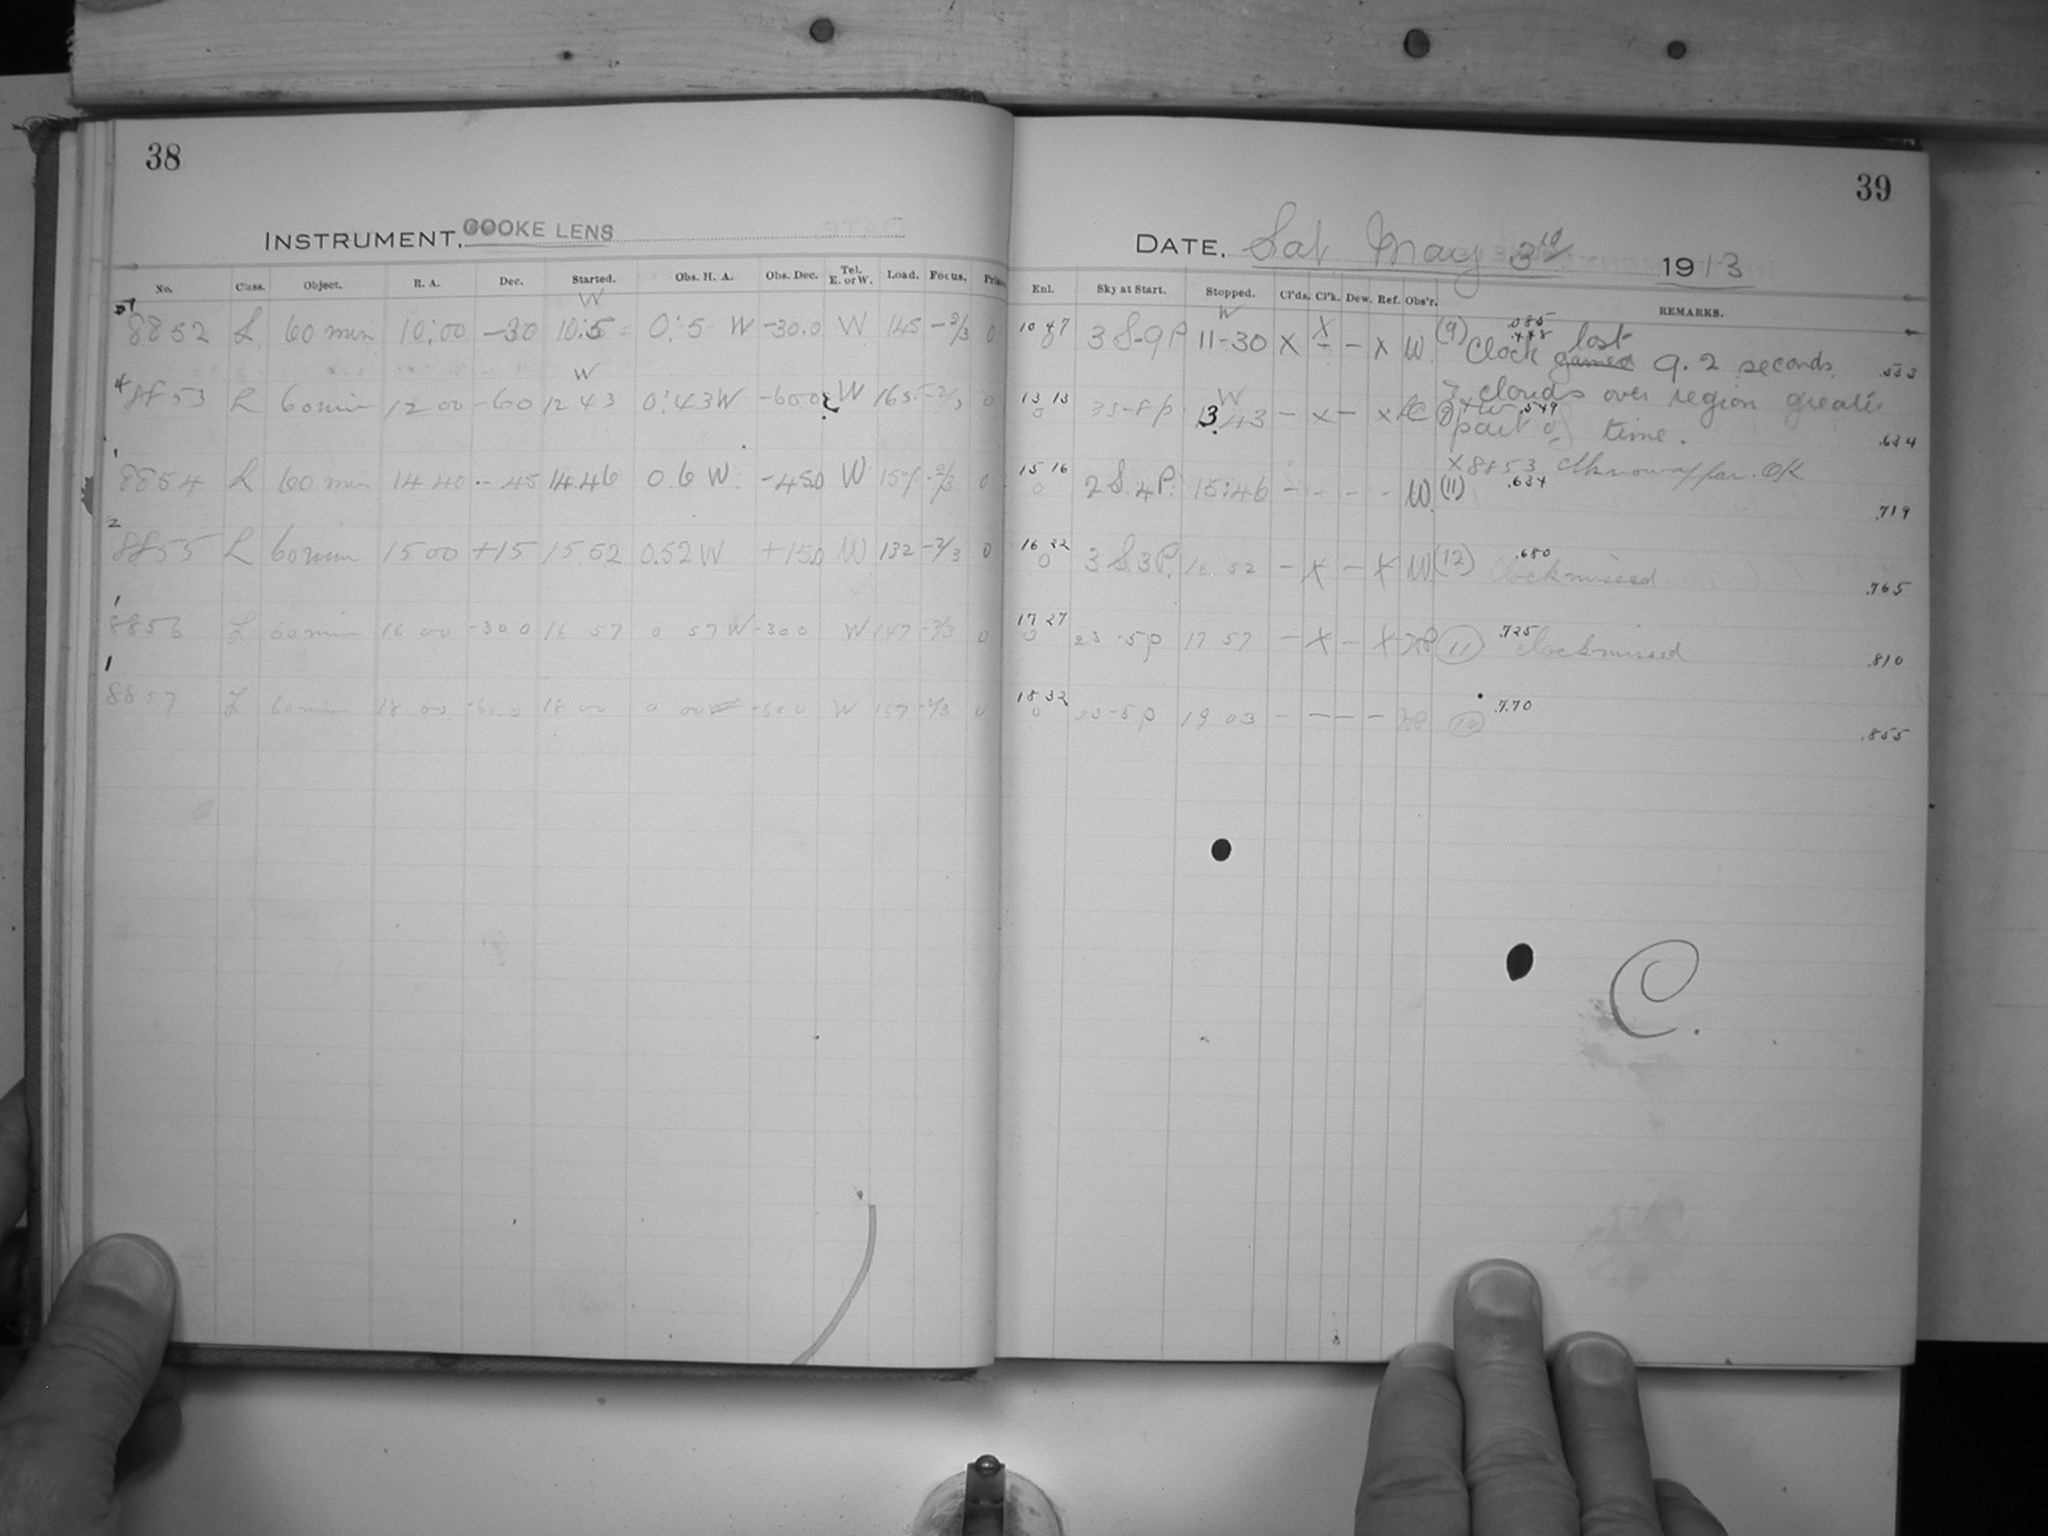 38
INSTRUMENT. COOKE LENS
No. Class. Object. R. A. Dec. Started. Obs. H. A. Obs. Dec. Tel. E. or W. Load. Focus.
W
8852 L 60 min 10:00 -30 10:5 0:5 W -30.0 W 145 -2/3 0
W
4 8853 L 60 min 12 00 -60 12 43 0:43 W -60.0 W 165 -2/3 0
1
8854 L 60 min 14.40 -45 14.46 0.6 W. -45.0 W 151 -2/3 0
2
8855 L 60 min 15 00 +15 15.52 0.52 W +15.0 W 132 -2/3 0
1
8856 L 60 min 16 00 -30 0 16 57 0 57 W -30 0 W 147 -2/3 0
1
8857 L 60 min 18 00 -60.0 18 00 0 00 -60.0 W 167 -2/3 0
39
DATE. Sat May 3rd 1913
Enl. Sky at Start. Stopped. Cl'ds. Cl'k. Dew. Ref. Obs'r. REMARKS.
W
10 47 0 3 S-9P 11-30 X X - - X W. (9) Clock gained lost 9.2 seconds. .533
clouds over region greater
W
13 13 0 3S-8p 13 43 - x - x .549
part of time. .634
X 8853
15 16 0 2 S. 4 P. 15:46 - - - - W. (11) .634
.719
16 22 0 3 S. 3 P. 16 52 - X - X W (12) .680 Clock missed .765
17 27 0 2S-5p 17 57 - X - X (11) .725 Clock missed .810
18 32 0 2S-5p 19 03 - - - - .770
.855
C.